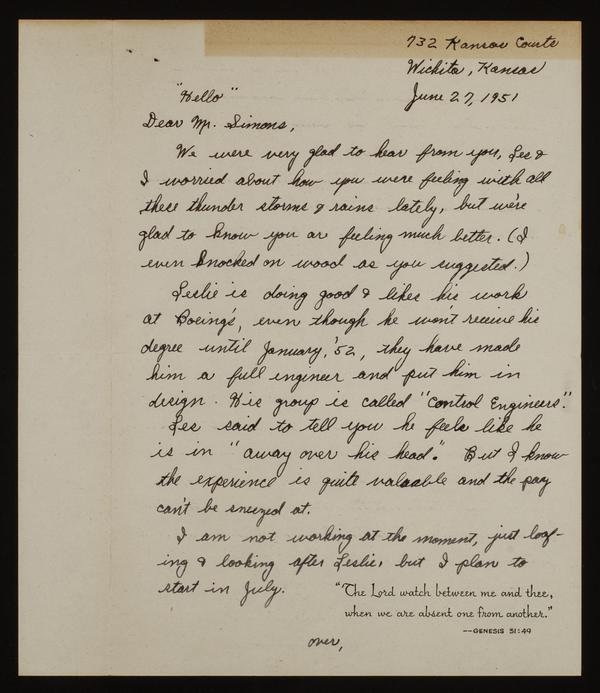 732 Kansas Courts
Wichita, Kansas
June 27, 1951
"Hello"
Dear Mr. Simons,
We were very glad to hear from you, Les &
I worried about how you were feeling with all
these thunder storms & rains lately, but we're
glad to know you are feeling much better. (I
even knocked on wood as you suggested.)
Leslie is doing good & likes his work
at Boeing's, even though he won't receive his
degree until January, '52, they have made
him a full engineer and put him in
design. His group is called "Control Engineers".
Les said to tell you he feels like he
is in "away over his head". But I know
the experience is quite valuable and the pay
can't be sneezed at.
I am not working at the moment, just loaf-
ing & looking after Leslie, but I plan to
start in July.
"The Lord watch between me and thee,
when we are absent one from another."
--GENESIS 31:49
over,